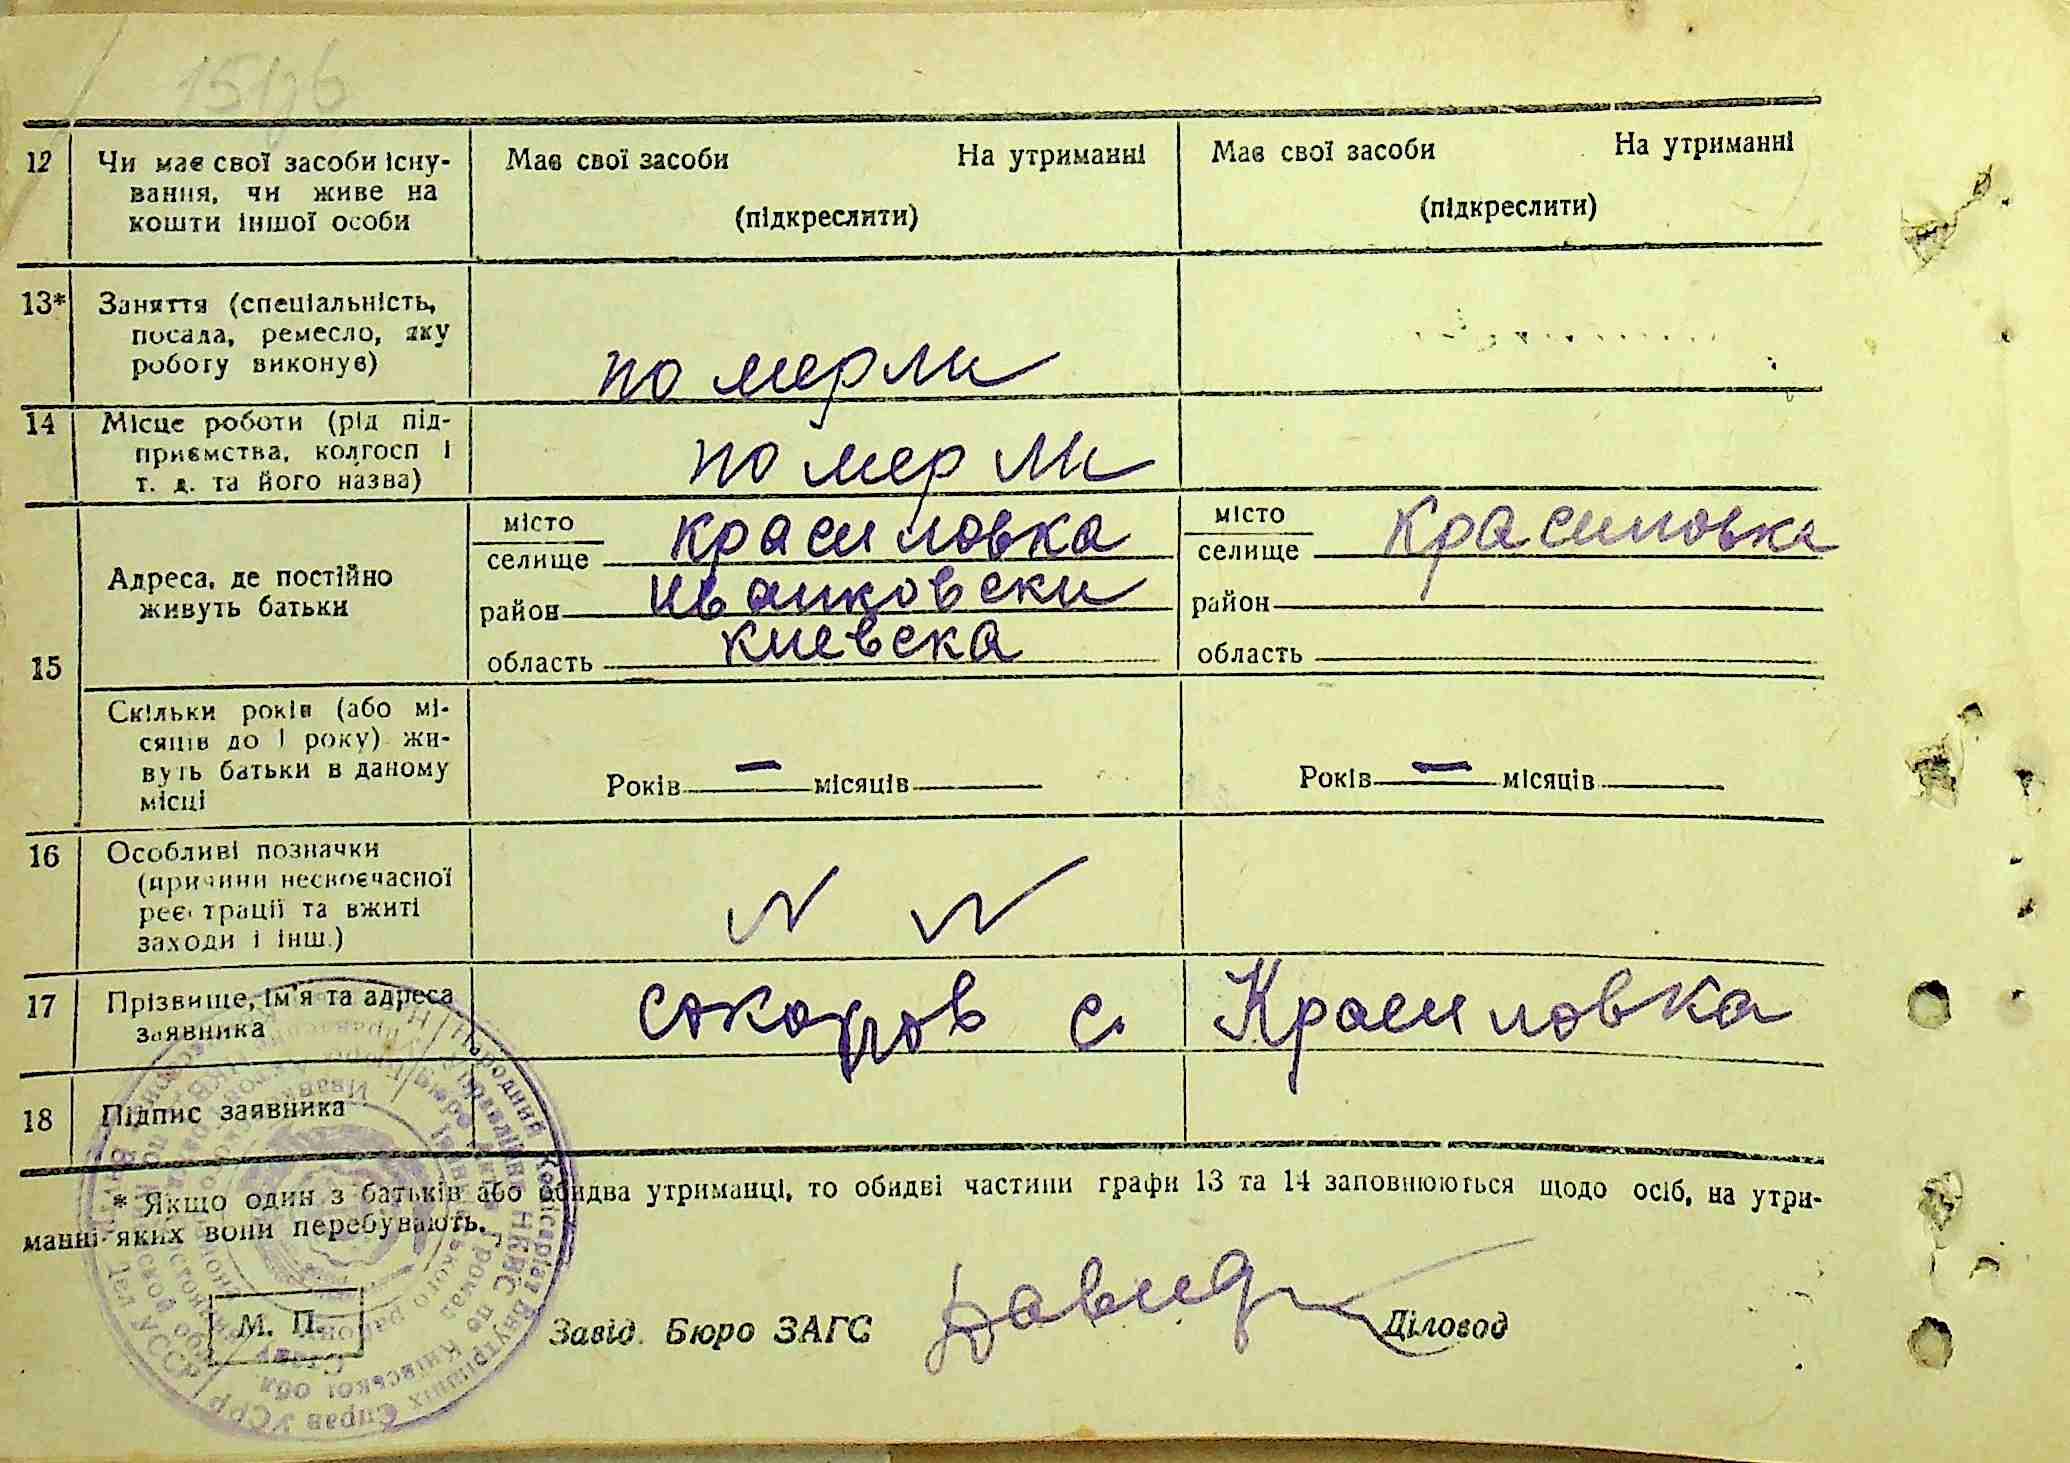 12 Чи має свої засоби існу-
вання, чи живе на
кошти іншої особи
Має свої засоби На утриманні
(підкреслити)
Має свої засоби На утриманні
(підкреслити)
13* Заняття (спеціальність,
посада, ремесло, яку
роботу виконує)
померли
14 Місце роботи (рід під-
приємства, колгосп і
т. д. та його назва)
померли
15
Адреса, де постійно
живуть батьки
місто
селище красиловка
район иванковски
область киевска
місто
селище Красиловка
район
область
Скільки років (або мі-
сяців до 1 року) жи-
вуть батьки в даному
місці
Років — місяців
Років — місяців
16 Особливі позначки
(причини несвоєчасної
реєстрації та вжиті
заходи і інш.)
17 Прізвище, ім'я та адреса
заявника
с. Красиловка
18 Підпис заявника
* Якщо один з батьків або обидва утриманці, то обидві частини графи 13 та 14 заповнюються щодо осіб, на утри-
манні яких вони перебувають.
М. П.
Завід. Бюро ЗАГС Діловод
Народний Комісаріат Внутрішніх Справ УСРР